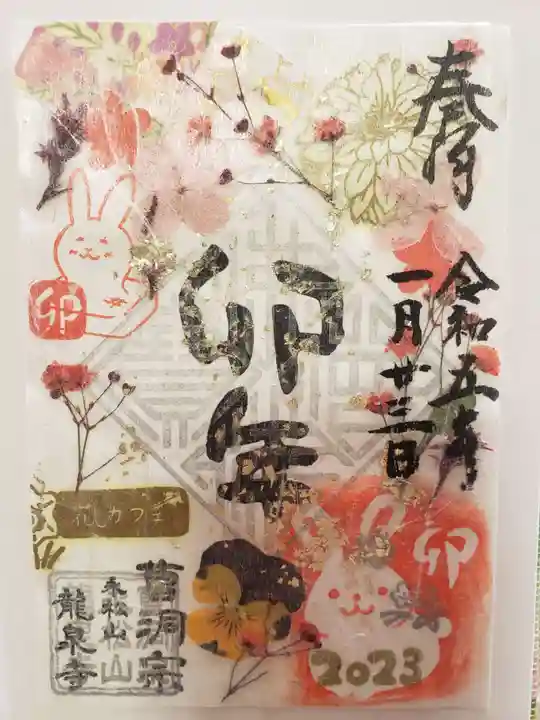 奉拝
令和五年
一月廿三日
卯年
卯
花カフェ
曹洞宗
永松山
龍泉寺
卯
2023